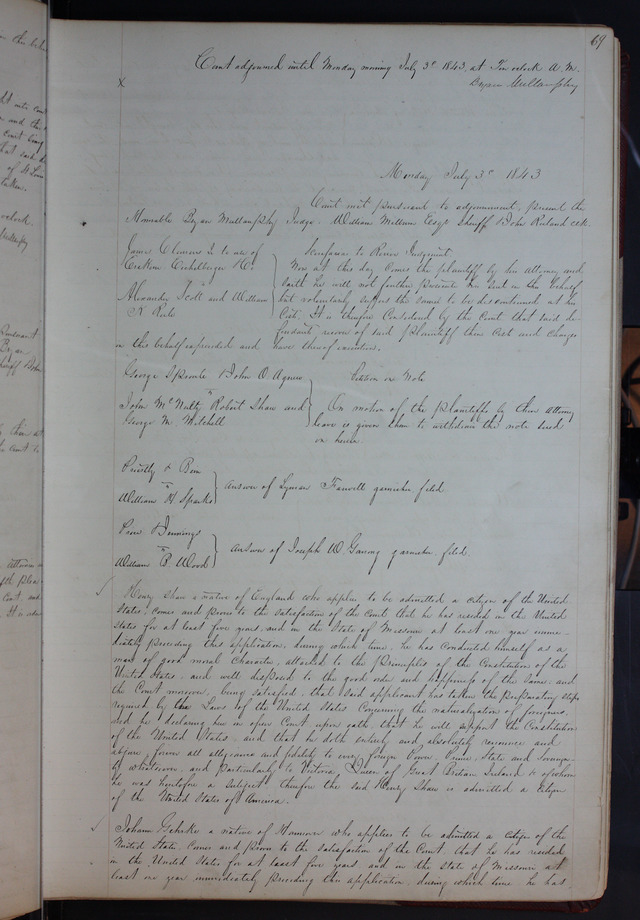 69
Court adjourned until Monday morning July 3d 1843, at Ten oclock A. M.
Bryan Mullanphy
Monday July 3d 1843
Court met pursuant to adjournment, present the
Honorable Bryan Mullanphy Judge. William Milburn Esqr Sheriff & John Ruland clk.
James Clemens Jr to use of
Alexander Scott and William
Scirefacias to Revive Judgment
Now at this day comes the plaintiff by his attorney and
saith he will not further prosecute his suit in this behalf
but voluntarily suffers the same to be discontinued at his
Cost. It is therefore Considered by the Court that said de-
fendants recover of said plaintiff their cost and charges
in this behalf expended and have thereof execution.
George Sproule & John O. Agnew
vs
John McNulty Robert Shaw and
George M. Mitchell
Petition on Note
On motion of the plaintiffs by their attorney
leave is given them to withdraw the note sued
on herein
Priestly & Bein
vs
William H. Sparks
Answer of Lyman Farwell garnishee filed
& Jennings
vs
William P. Wood
Answer of Joseph W. garnishee filed
Henry Shaw a native of England who applies to be admitted a citizen of the United
States, comes and proves to the satisfaction of the Court that he has resided in the United
States for at least five years, and in the State of Missouri at least one year imme-
diately preceding this application, during which time, he has conducted himself as a
man of good moral character, attached to the principles of the Constitution of the
United States, and well disposed to the good order and happiness of the same; and
the Court moreover, being satisfied, that said applicant has taken the preparatory steps
required by the Laws of the United States Concerning the naturalization of foreigners
and he declaring here in open Court upon oath, that he will support the Constitution
of the United States, and that he doth entirely and absolutely renounce and
abjure, forever all allegiance and fidelity to every foreign Power, Prince, State and Sovereign-
ty whatsoever, and particularly to Victoria Queen of Great Britain Ireland & of whom
he was heretofore a subject, therefore the said Henry Shaw is admitted a citizen
of the United States of America.
Johann Gehrke a native of Hannover who applies to be admitted a citizen of the
United States Comes and proves to the satisfaction of the Court, that he has resided
in the United States for at least five years and in the state of Missouri at
least one year immediately preceding this application, during which time, he has